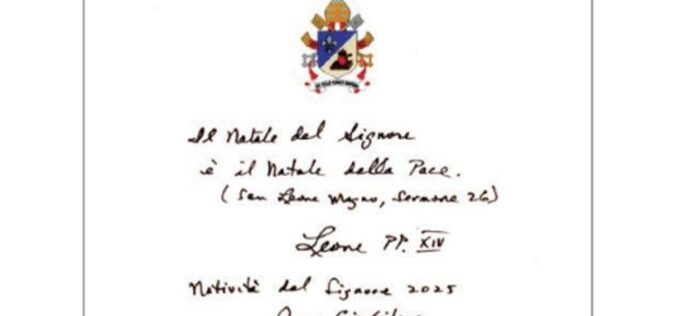 Il Natale del Signore
è il Natale della Pace.
(San Leone Magno, Sermone 26)
Leone PP. XIV
Natività del Signore 2025